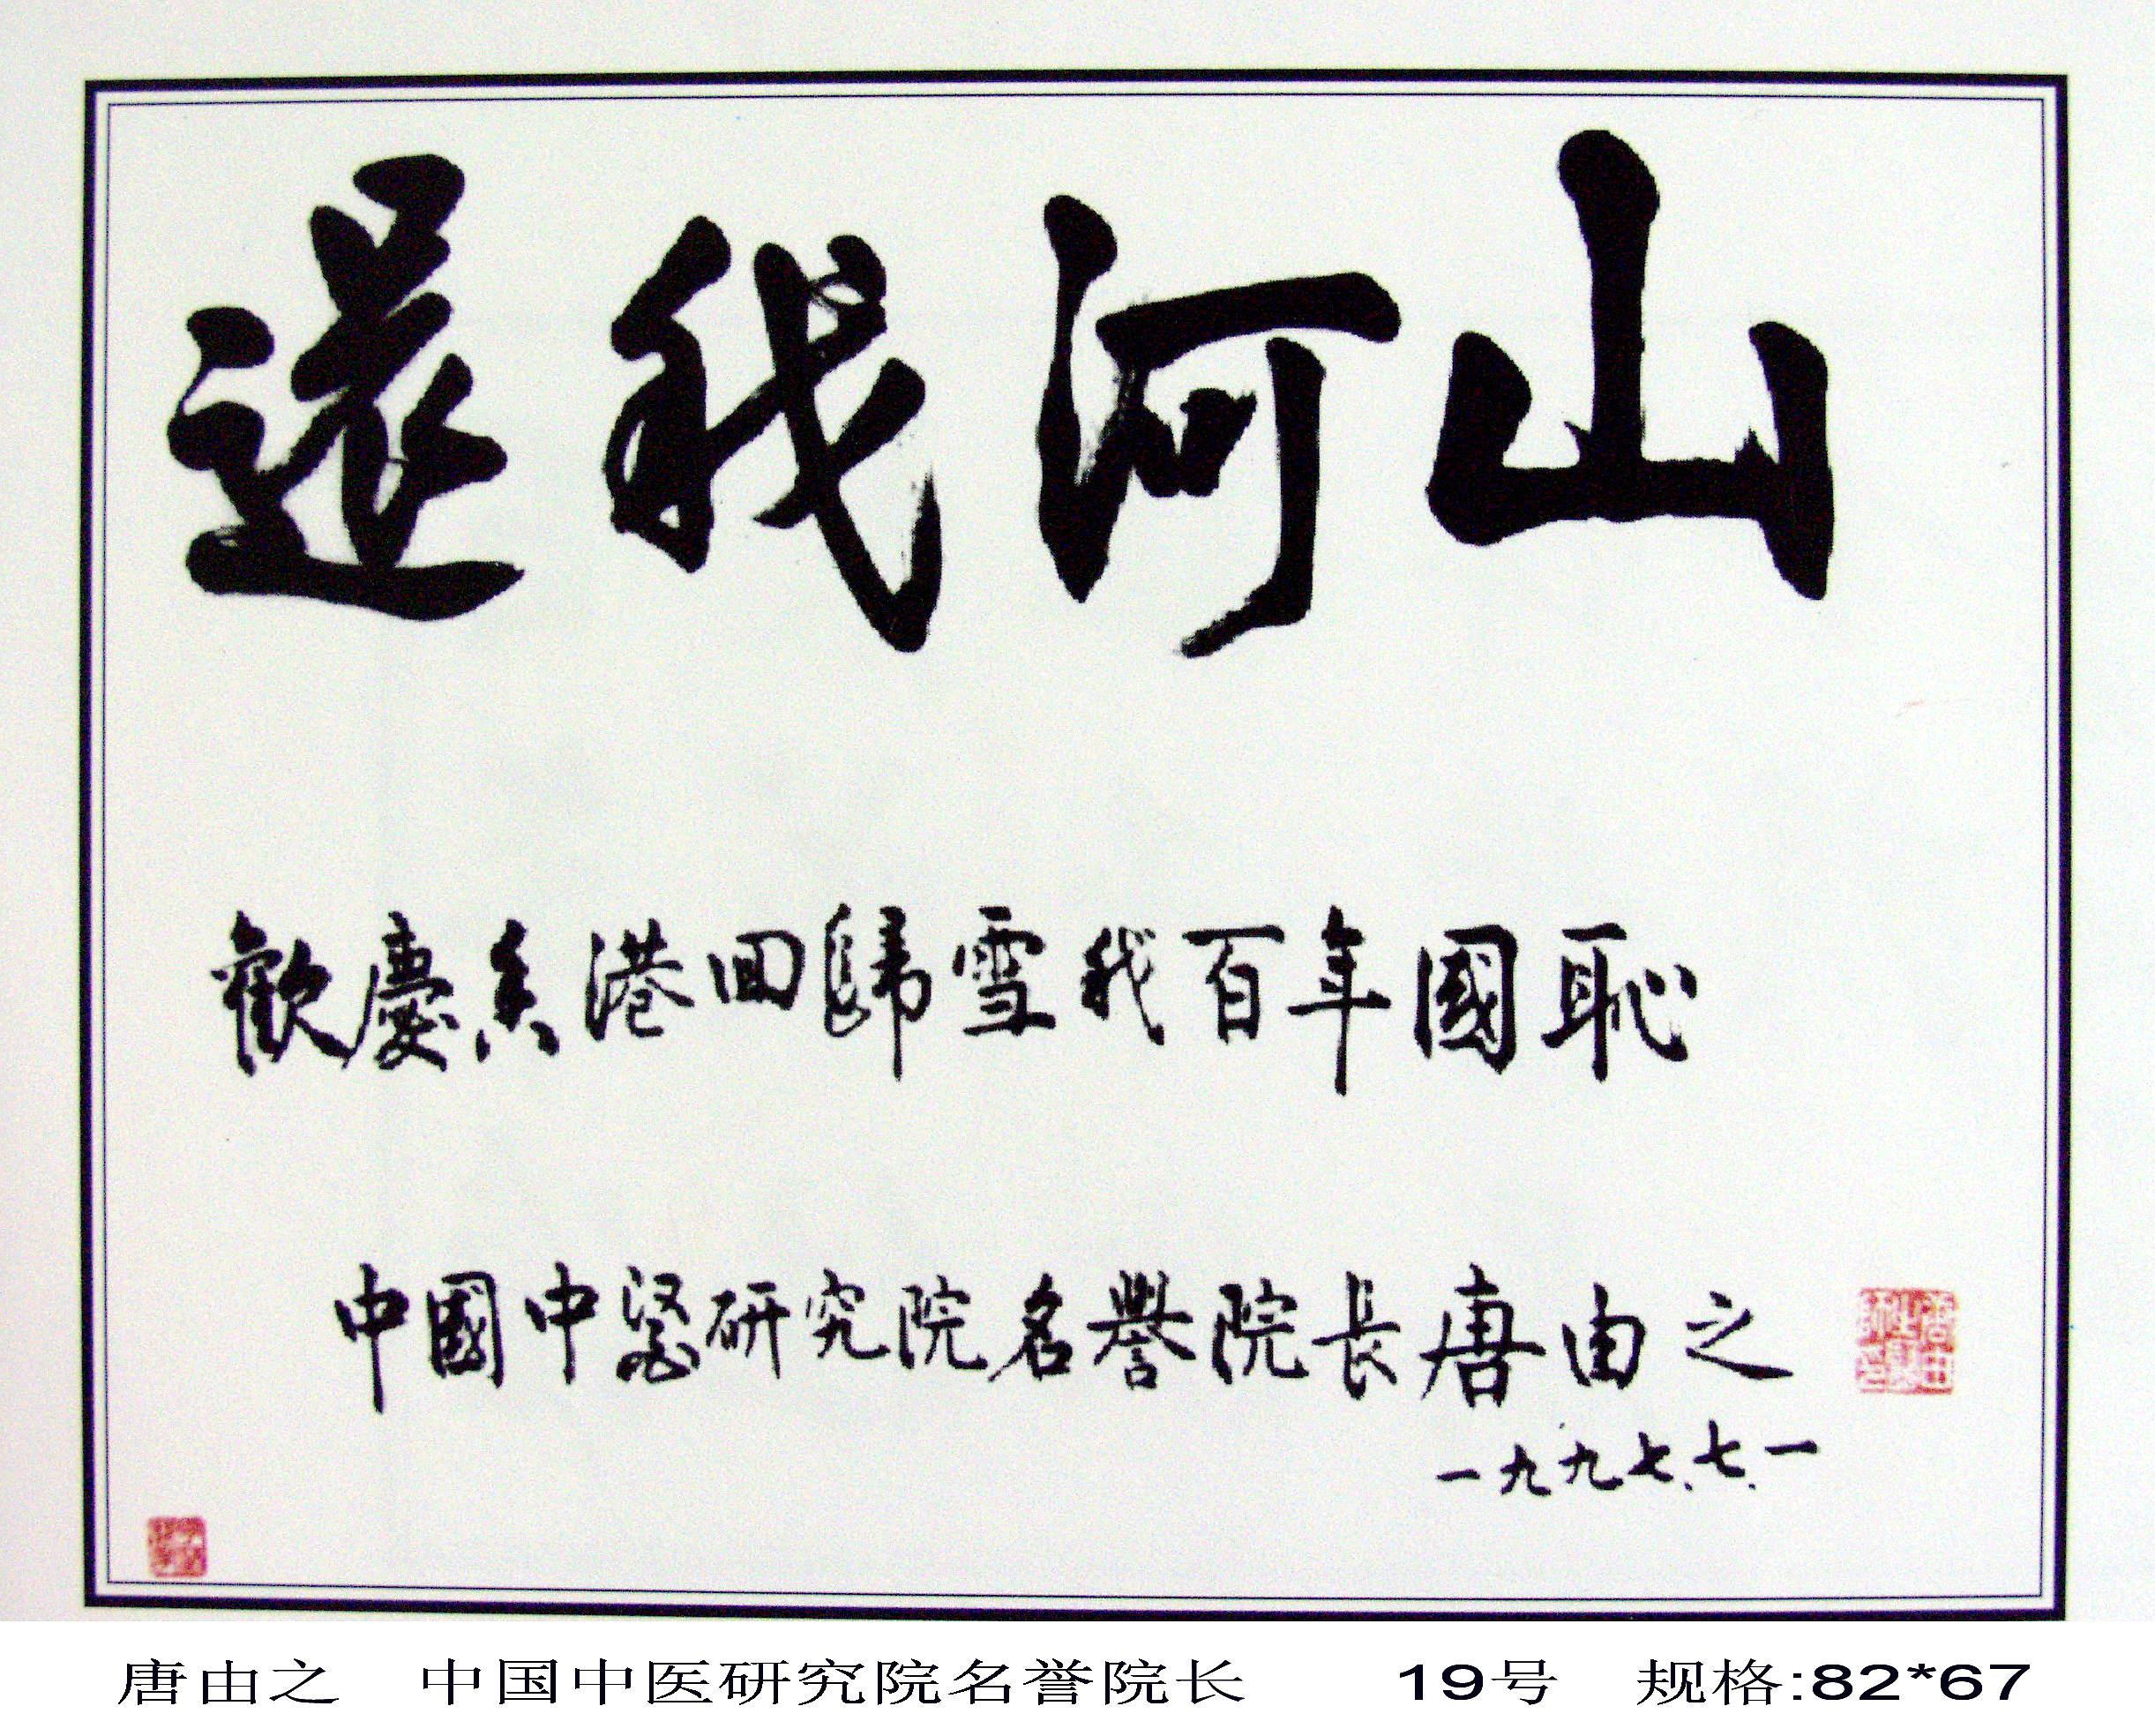 還我河山
歡慶香港回歸雪我百年國恥
中國中醫研究院名譽院長唐由之
一九九七.七.一
唐由之 中国中医研究院名誉院长 19号 规格:82*67